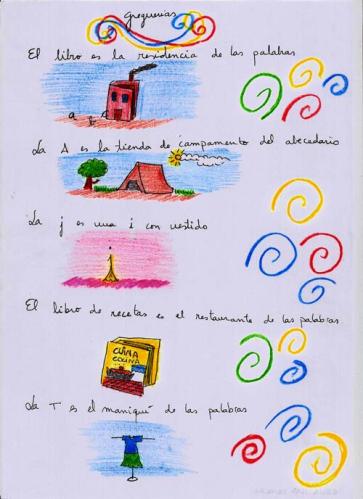 Greguerías
El libro es la residencia de las palabras
a
La A es la tienda de campamento del abecedario
La j es una i con vestido
El libro de recetas es el restaurante de las palabras
CUINA
COCINA
La T es el maniquí de las palabras